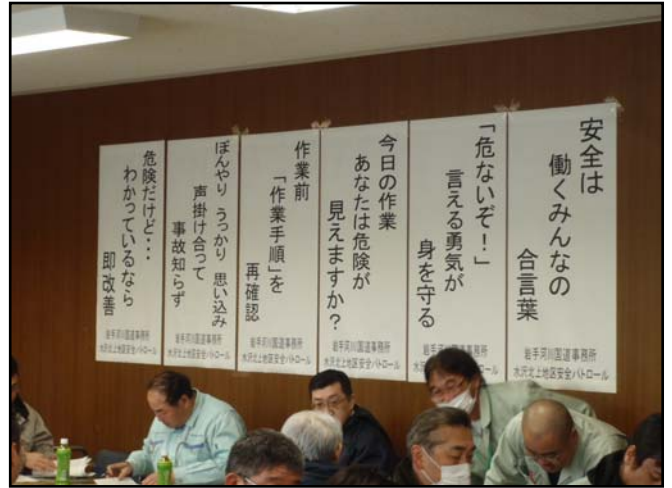 安全は
働くみんなの
合言葉
岩手河川国道事務所
水沢北上地区安全パトロール
「危ないぞ！」
言える勇気が
身を守る
岩手河川国道事務所
水沢北上地区安全パトロール
今日の作業
あなたは危険が
見えますか？
岩手河川国道事務所
水沢北上地区安全パトロール
作業前
「作業手順」を
再確認
岩手河川国道事務所
水沢北上地区安全パトロール
ぼんやり うっかり 思い込み
声掛け合って
事故知らず
岩手河川国道事務所
水沢北上地区安全パトロール
危険だけど・・・
わかっているなら
即改善
岩手河川国道事務所
水沢北上地区安全パトロール